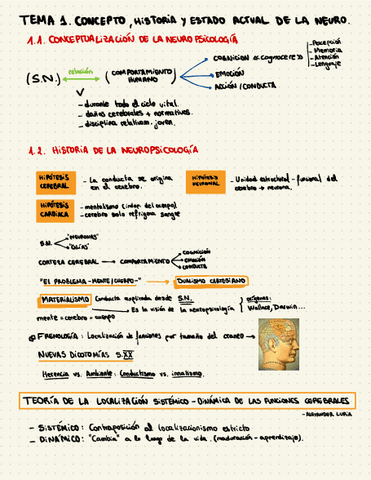 TEMA 1. CONCEPTO, HISTORIA Y ESTADO ACTUAL DE LA NEURO.
1.1. CONCEPTUALIZACIÓN DE LA NEUROPSICOLOGÍA
(S.N.) relación (COMPORTAMIENTO HUMANO)
COGNICIÓN (cognoscere)
- Percepción
- Memoria
- Atención
- Lenguaje
EMOCIÓN
ACCIÓN / CONDUCTA
- durante todo el ciclo vital.
- daños cerebrales + normativos.
- disciplina relativam. joven.
1.2. HISTORIA DE LA NEUROPSICOLOGÍA
HIPÓTESIS CEREBRAL
- La conducta se origina
en el cerebro.
HIPÓTESIS NEURONAL
- Unidad estructural-funcional del
cerebro → neurona.
HIPÓTESIS CARDÍACA
- mentalismo
- cerebro solo refrigera sangre
S.N.
"NEURONAS"
"GLÍAS"
CORTEZA CEREBRAL → COMPORTAMIENTO
COGNICIÓN
EMOCIÓN
CONDUCTA
"EL PROBLEMA-MENTE/CUERPO-" → DUALISMO CARTESIANO
MATERIALISMO Conducta explicada desde S.N.
mente = cerebro = cuerpo
→ Es la visión de la neuropsicología
orígenes:
Wallace, Darwin...
FRENOLOGÍA: Localización de funciones por tamaño del cráneo
NUEVAS DICOTOMÍAS S.XX
Herencia vs. Ambiente; Conductismo vs. innatismo.
TEORÍA DE LA LOCALIZACIÓN SISTÉMICO-DINÁMICA DE LAS FUNCIONES CEREBRALES
- ALEXANDER LURIA
- SISTÉMICO: Contraposición al localizacionismo estricto
- DINÁMICO: "Cambia" a lo largo de la vida. (maduración-aprendizaje).